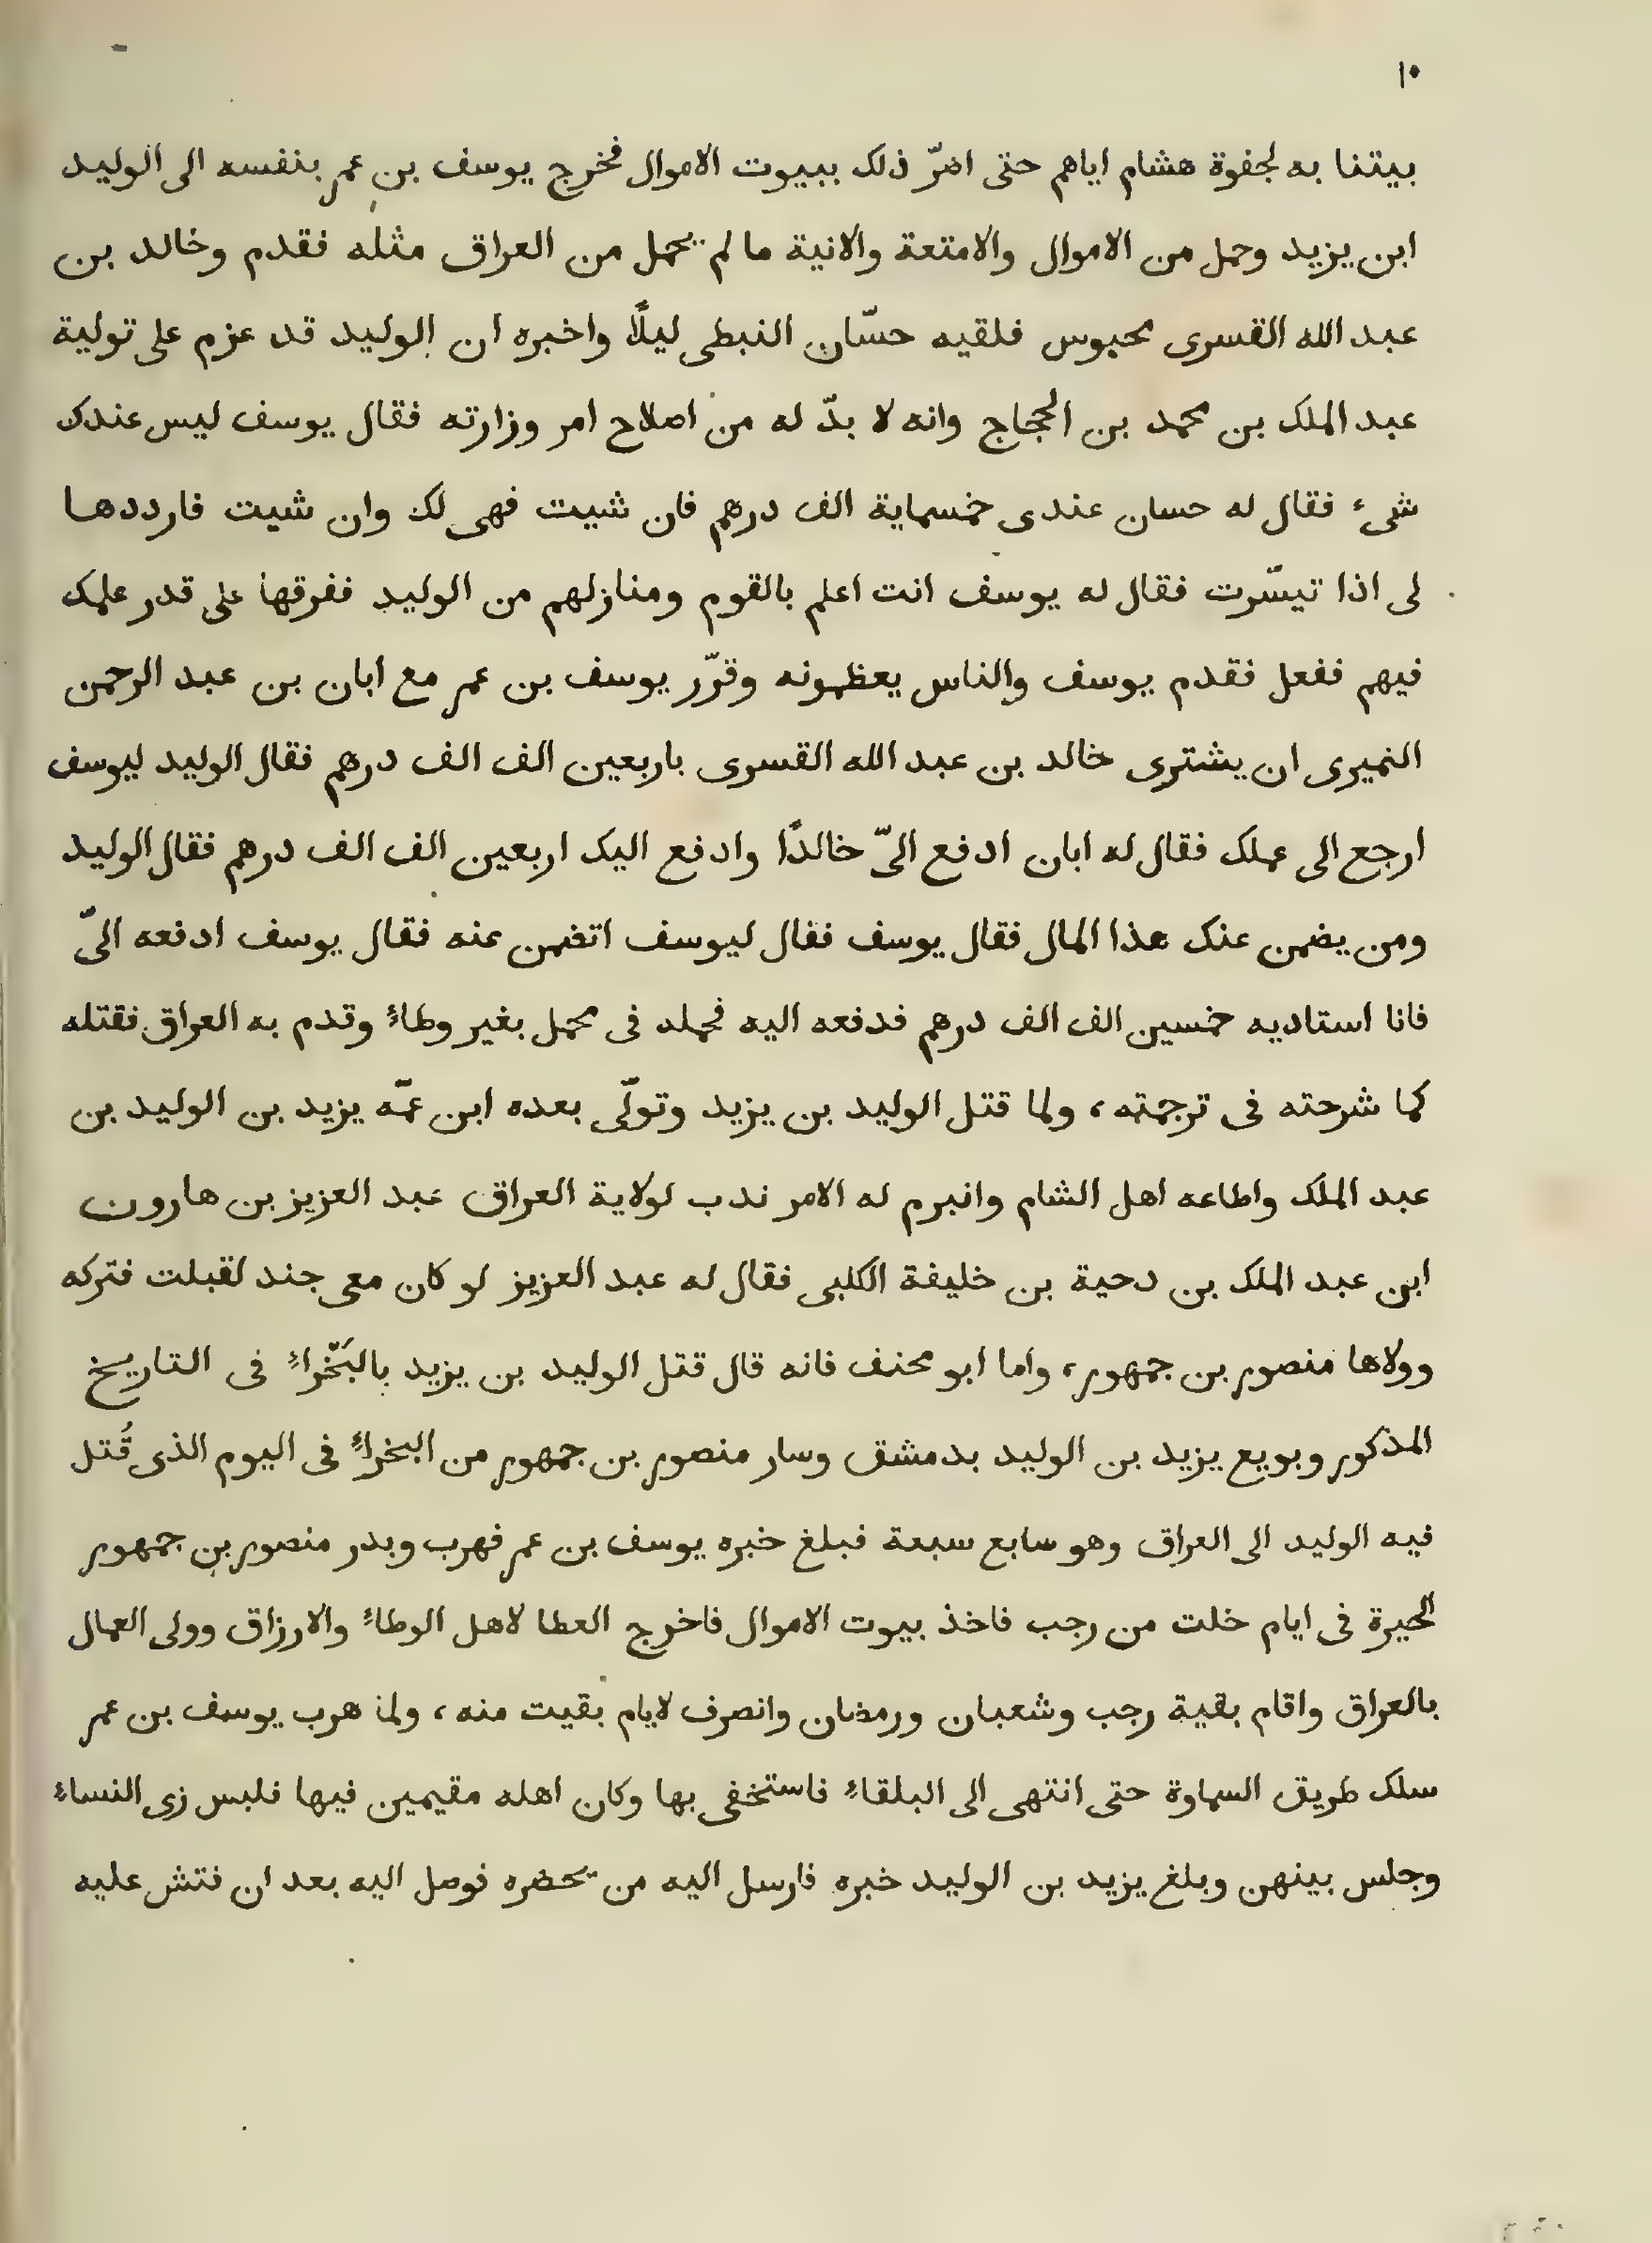 ١٠
بيتنا به لجفوة هشام اياهم حتى اضرّ ذلك ببيوت الاموال فخرج يوسف بن عمر بنفسه الى الوليد
ابن يزيد وحمل من الاموال والامتعة والانية ما لم يحمل من العراق مثله فقدم وخالد بن
عبد الله القسرى محبوس فلقيه حسّان النبطى ليلًا واخبره ان الوليد قد عزم على تولية
عبد الملك بن محمد بن الحجاج وانه لا بدّ له من اصلاح امر وزارته فقال يوسف ليس عندك
شىء فقال له حسان عندى خمسماية الف درهم فان شيت فهى لك وان شيت فارددها
لى اذا تيسّرت فقال له يوسف انت اعلم بالقوم ومنازلهم من الوليد ففرقها على قدر علمك
فيهم ففعل فقدم يوسف والناس يعظمونه وقرّر يوسف بن عمر مع ابان بن عبد الرحمن
النميرى ان يشترى خالد بن عبد الله القسرى باربعين الف الف درهم فقال الوليد ليوسف
ارجع الى عملك فقال له ابان ادفع الىّ خالدًا وادفع اليك اربعين الف الف درهم فقال الوليد
ومن يضمن عنك هذا المال فقال يوسف فقال ليوسف اتضمن عنه فقال يوسف ادفعه الىّ
فانا استاديه خمسين الف الف درهم فدفعه اليه فحمله فى محمل بغير وطاءٍ وقدم به العراق فقتله
كما شرحته فى ترجمته، ولما قتل الوليد بن يزيد وتولّى بعده ابن عمّه يزيد بن الوليد بن
عبد الملك واطاعه اهل الشام وانبرم له الامر ندب لولاية العراق عبد العزيز بن هارون
ابن عبد الملك بن دحية بن خليفة الكلبى فقال له عبد العزيز لو كان معى جند لقبلت فتركه
وولاها منصور بن جمهور، واما ابو محنف فانه قال قتل الوليد بن يزيد بالبَخْراءِ فى التاريخ
المذكور وبويع يزيد بن الوليد بدمشق وسار منصور بن جمهور من البخراءِ فى اليوم الذى قُتل
فيه الوليد الى العراق وهو سابع سبعة فبلغ خبره يوسف بن عمر فهرب وبدر منصور بن جمهور
الحيرة فى ايام خلت من رجب فاخذ بيوت الاموال فاخرج العطا لاهل الوطاءِ والارزاق وولى العمال
بالعراق واقام بقية رجب وشعبان ورمضان وانصرف لايام بقيت منه، ولما هرب يوسف بن عمر
سلك طريق السماوة حتى انتهى الى البلقاءِ فاستخفى بها وكان اهله مقيمين فيها فلبس زى النساءِ
وجلس بينهن وبلغ يزيد بن الوليد خبره فارسل اليه من يحضره فوصل اليه بعد ان فتش عليه